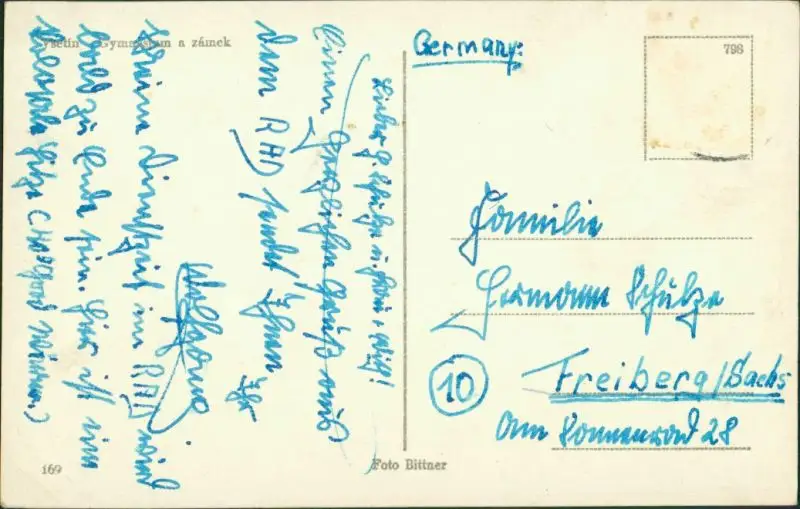 Vsetín Gymnasium a zámek
Lieber H. Schulze u. Frau + Kitz!
Einen herzlichen Gruß aus
dem RAD sendet Ihnen
Ihr
Wolfgang
Meine Dienstzeit im RAD wird
bald zu Ende sein. Hier ist eine
Hitze
169
Foto Bittner
Germany:
798
Familie
Hermann Schulze
10
Freiberg/Sachs
Am Sonnenrad 28